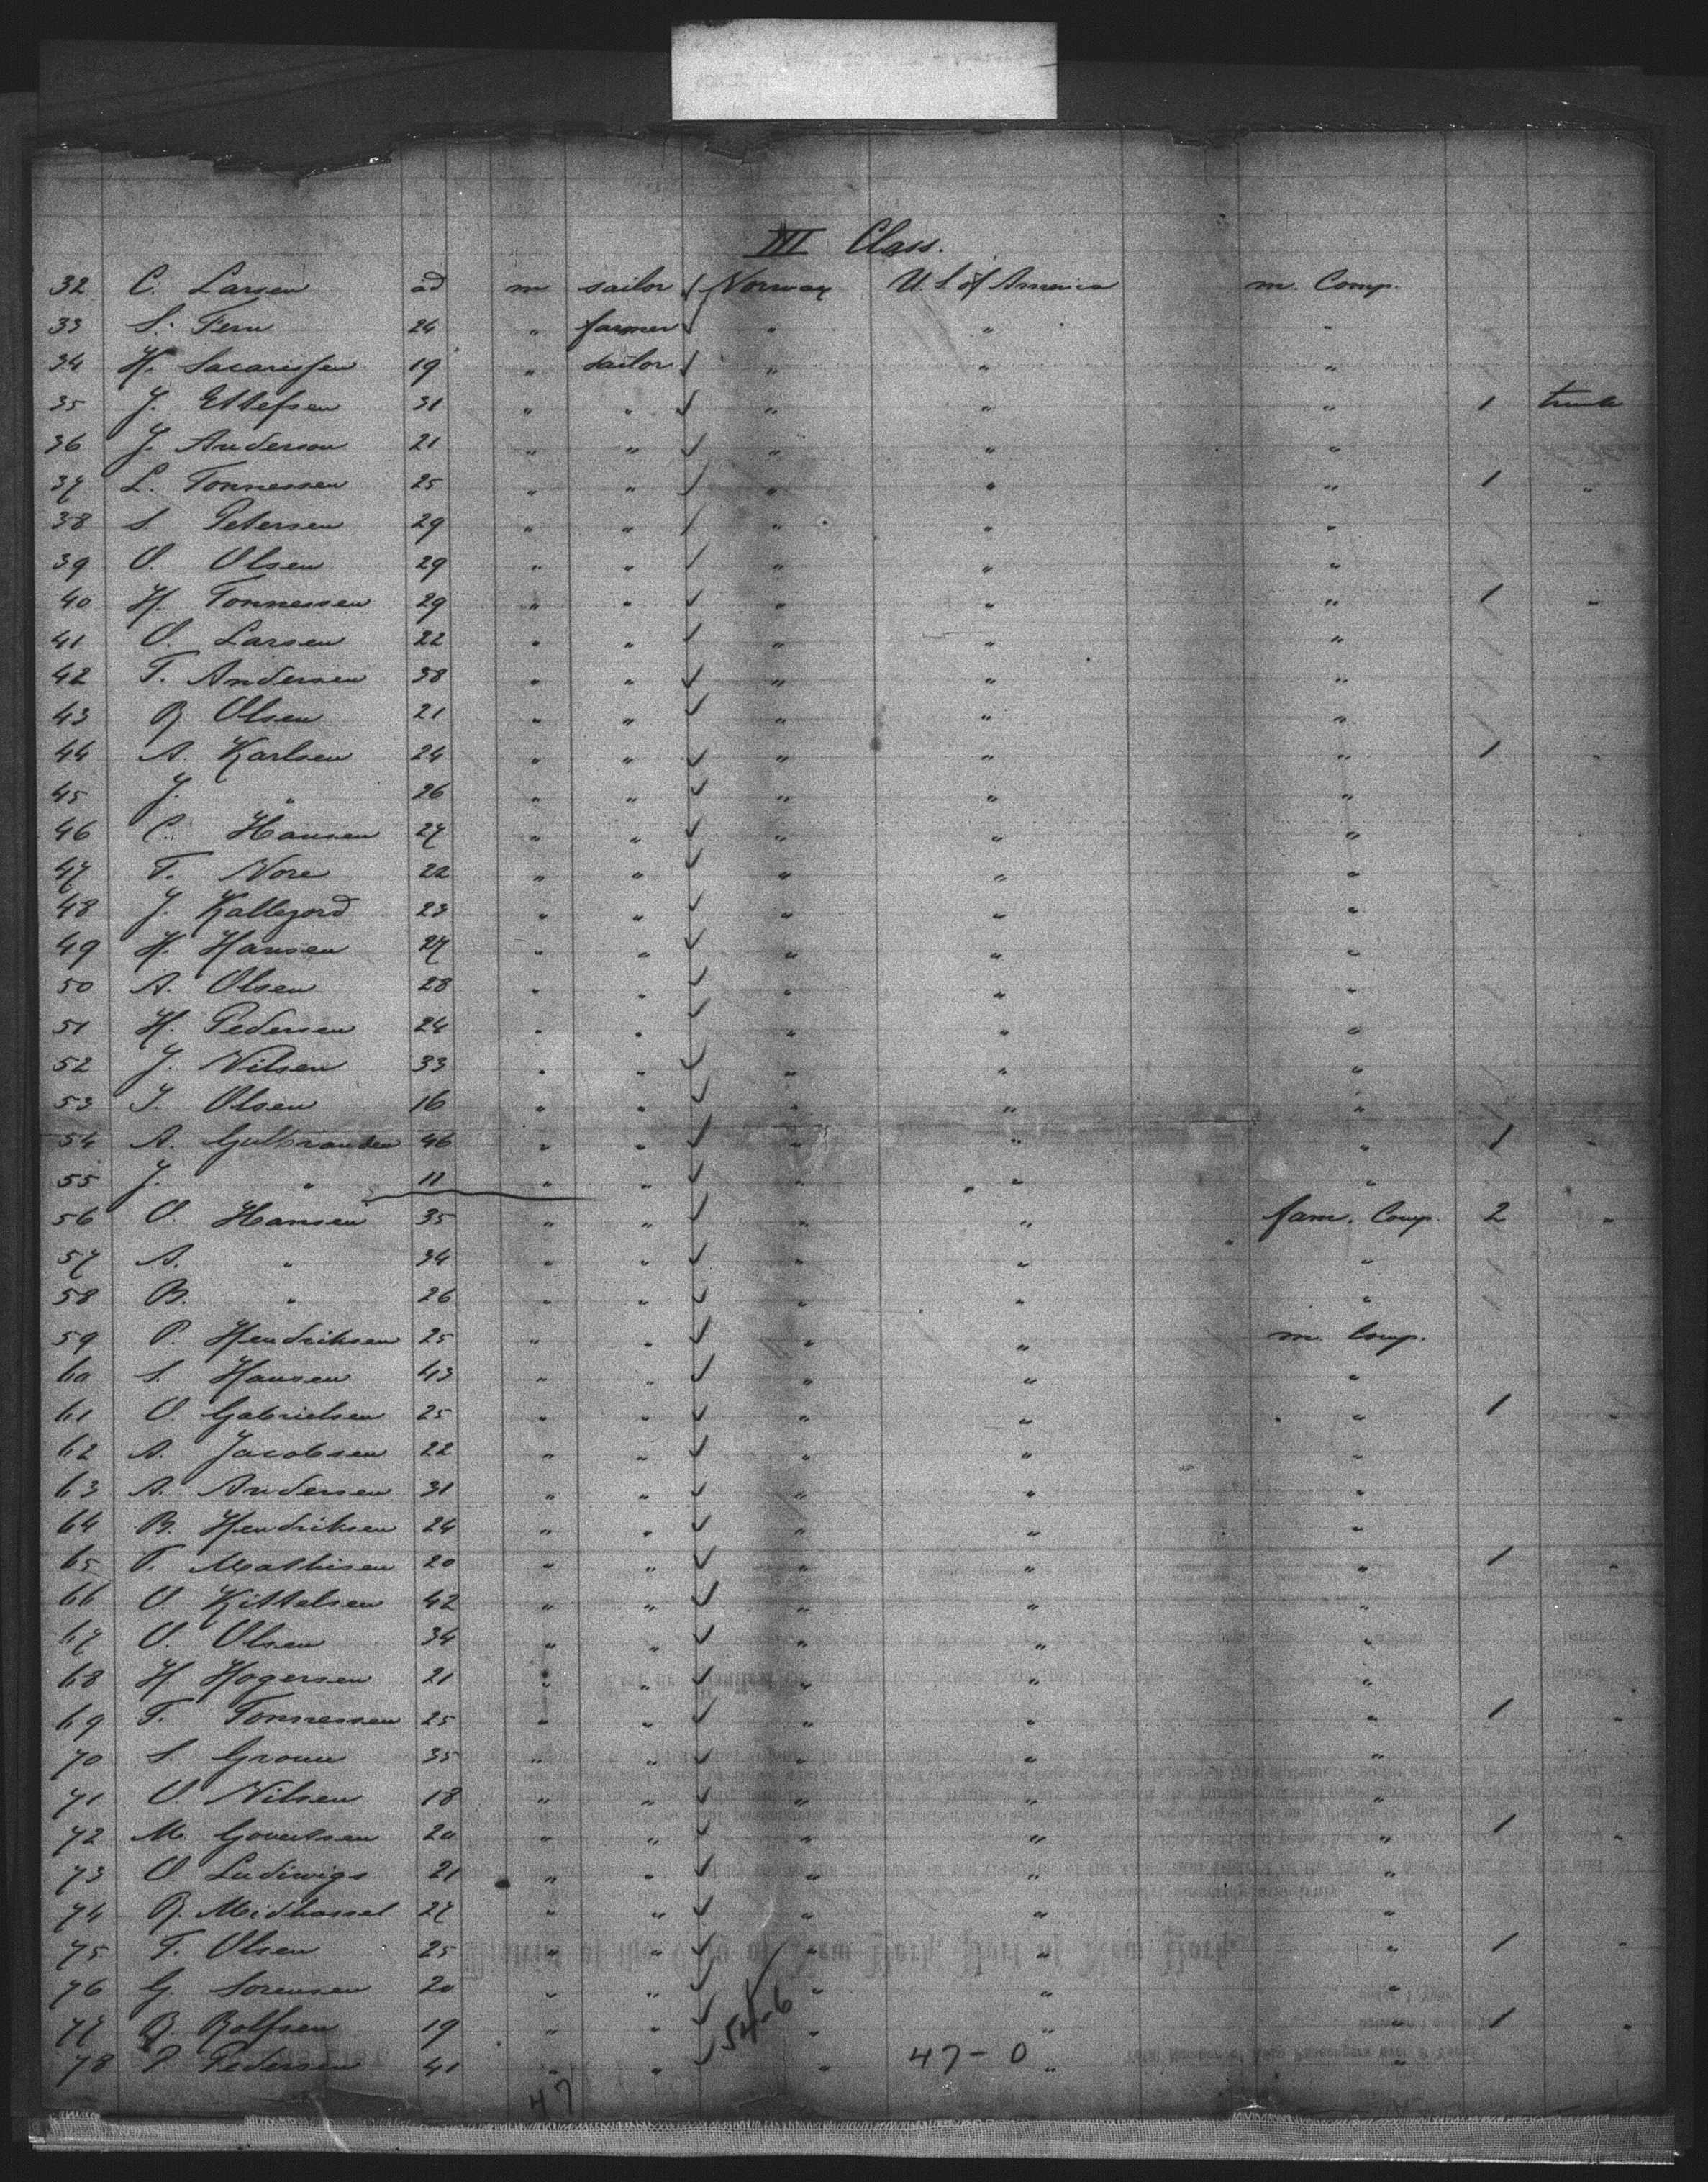 III Class.
32 C. Larsen ad m sailor Norway U. S. of America m. Comp.
33 S. Fern 24 " farmer " " "
34 H. Sacarissen 19 " sailor " " "
35 J. 31 " " " " " 1 trunk
36 J. Anderson 21 " " " " "
37 L. Tonnessen 25 " " " " " 1 "
38 S. Petersen 29 " " " " "
39 O. Olsen 29 " " " " "
40 H. Tonnessen 29 " " " " " 1 "
41 O. Larsen 22 " " " " "
42 T. Andersen 38 " " " " "
43 R Olsen 21 " " " " "
44 A. Karlsen 24 " " " " " 1 "
45 J. " 26 " " " " "
46 C. Hansen 27 " " " " "
47 T. Nore 22 " " " " "
48 J. 23 " " " " "
49 H. Hansen 27 " " " " "
50 A. Olsen 28 " " " " "
51 H. Pedersen 24 " " " " "
52 J. Nilsen 33 " " " " "
53 J. Olsen 16 " " " " "
54 A. Gulbrandsen 46 " " " " " 1 "
55 J. " 11 " " " " "
56 O. Hansen 35 " " " " fam. Comp. 2 "
57 A. " 34 " " " " "
58 B. " 26 " " " " "
59 P. Hendriksen 25 " " " " m. Comp.
60 S. Hansen 43 " " " " "
61 O. Gabrielsen 25 " " " " " 1 "
62 A. Jacobsen 22 " " " " "
63 A. Andersen 31 " " " " "
64 B. Hendriksen 24 " " " " "
65 T. Mathisen 20 " " " " " 1 "
66 O. Kittelsen 42 " " " " "
67 O. Olsen 34 " " " " "
68 H Hogersen 21 " " " " "
69 T. Tonnessen 25 " " " " " 1 "
70 S. 35 " " " " "
71 O. Nilsen 18 " " " " "
72 M. 20 " " " " " 1 "
73 O Ludiwigs 21 " " " " "
74 R. Midhassel 27 " " " " "
75 T. Olsen 25 " " " " " 1 "
76 G. Sorensen 20 " " " " "
77 R. Rolfsen 19 " " " " " 1 "
54-6
78 P Pedersen 41 " " " 47-0 " "
47